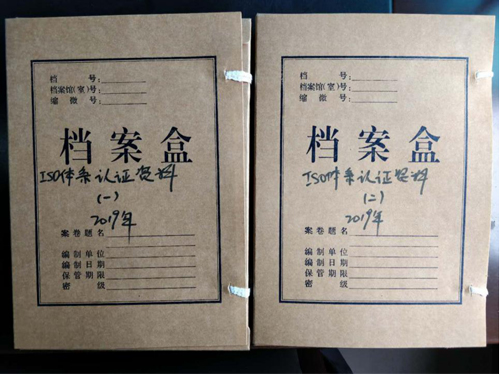 档 号:
档案馆(室)号:
缩 微 号:
档案盒
ISO体系认证资料
(一)
2019年
案卷题名
编制单位
编制日期
保管期限
密 级
档 号:
档案馆(室)号:
缩 微 号:
档案盒
ISO体系认证资料
(二)
2019年
案卷题名
编制单位
编制日期
保管期限
密 级